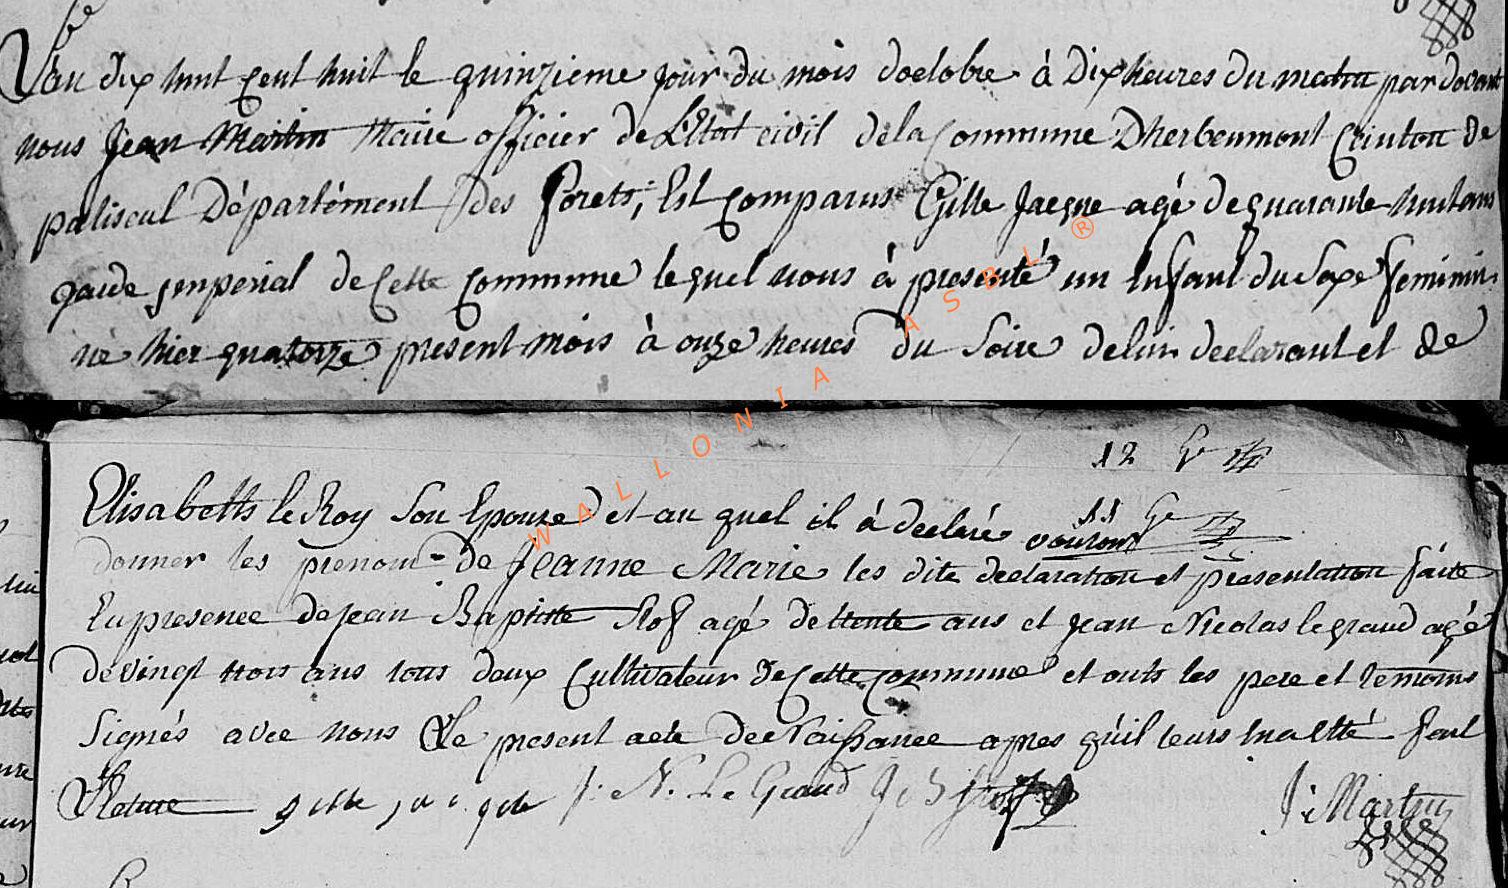 L'an dix huit cent huit le quinzieme jour du mois doctobre à Dix heures du matin par devant
nous Jean Martin Maire officier de L'Etat civil dela Commune Dherbeumont Canton de
paliseul Département Des Forets, Est comparus Gille Jacque agé de quarante huit ans
garde imperial de Cette Commune lequel nous à presenté un Enfant du Sexe feminin
né hier quatorze present mois à onze heures du Soire de lui declarant et de
WALLONIA ASBL ®
12
Elisabeth le Roy Son Epouse et au quel il à declaré vouloir
11
donner les prenom de Jeanne Marie les dite declaration et presentation faite
En presence de jean Baptiste agé de trente ans et Jean Nicolas le grand agé
de vingt trois ans tous deux Cultivateur de Cette commune et onts les pere et temoins
Signés avec nous Le present acte de Naissance apres quil leurs En a Eté fait
Lecture gille jacque J: N. Le Grand J: Martin